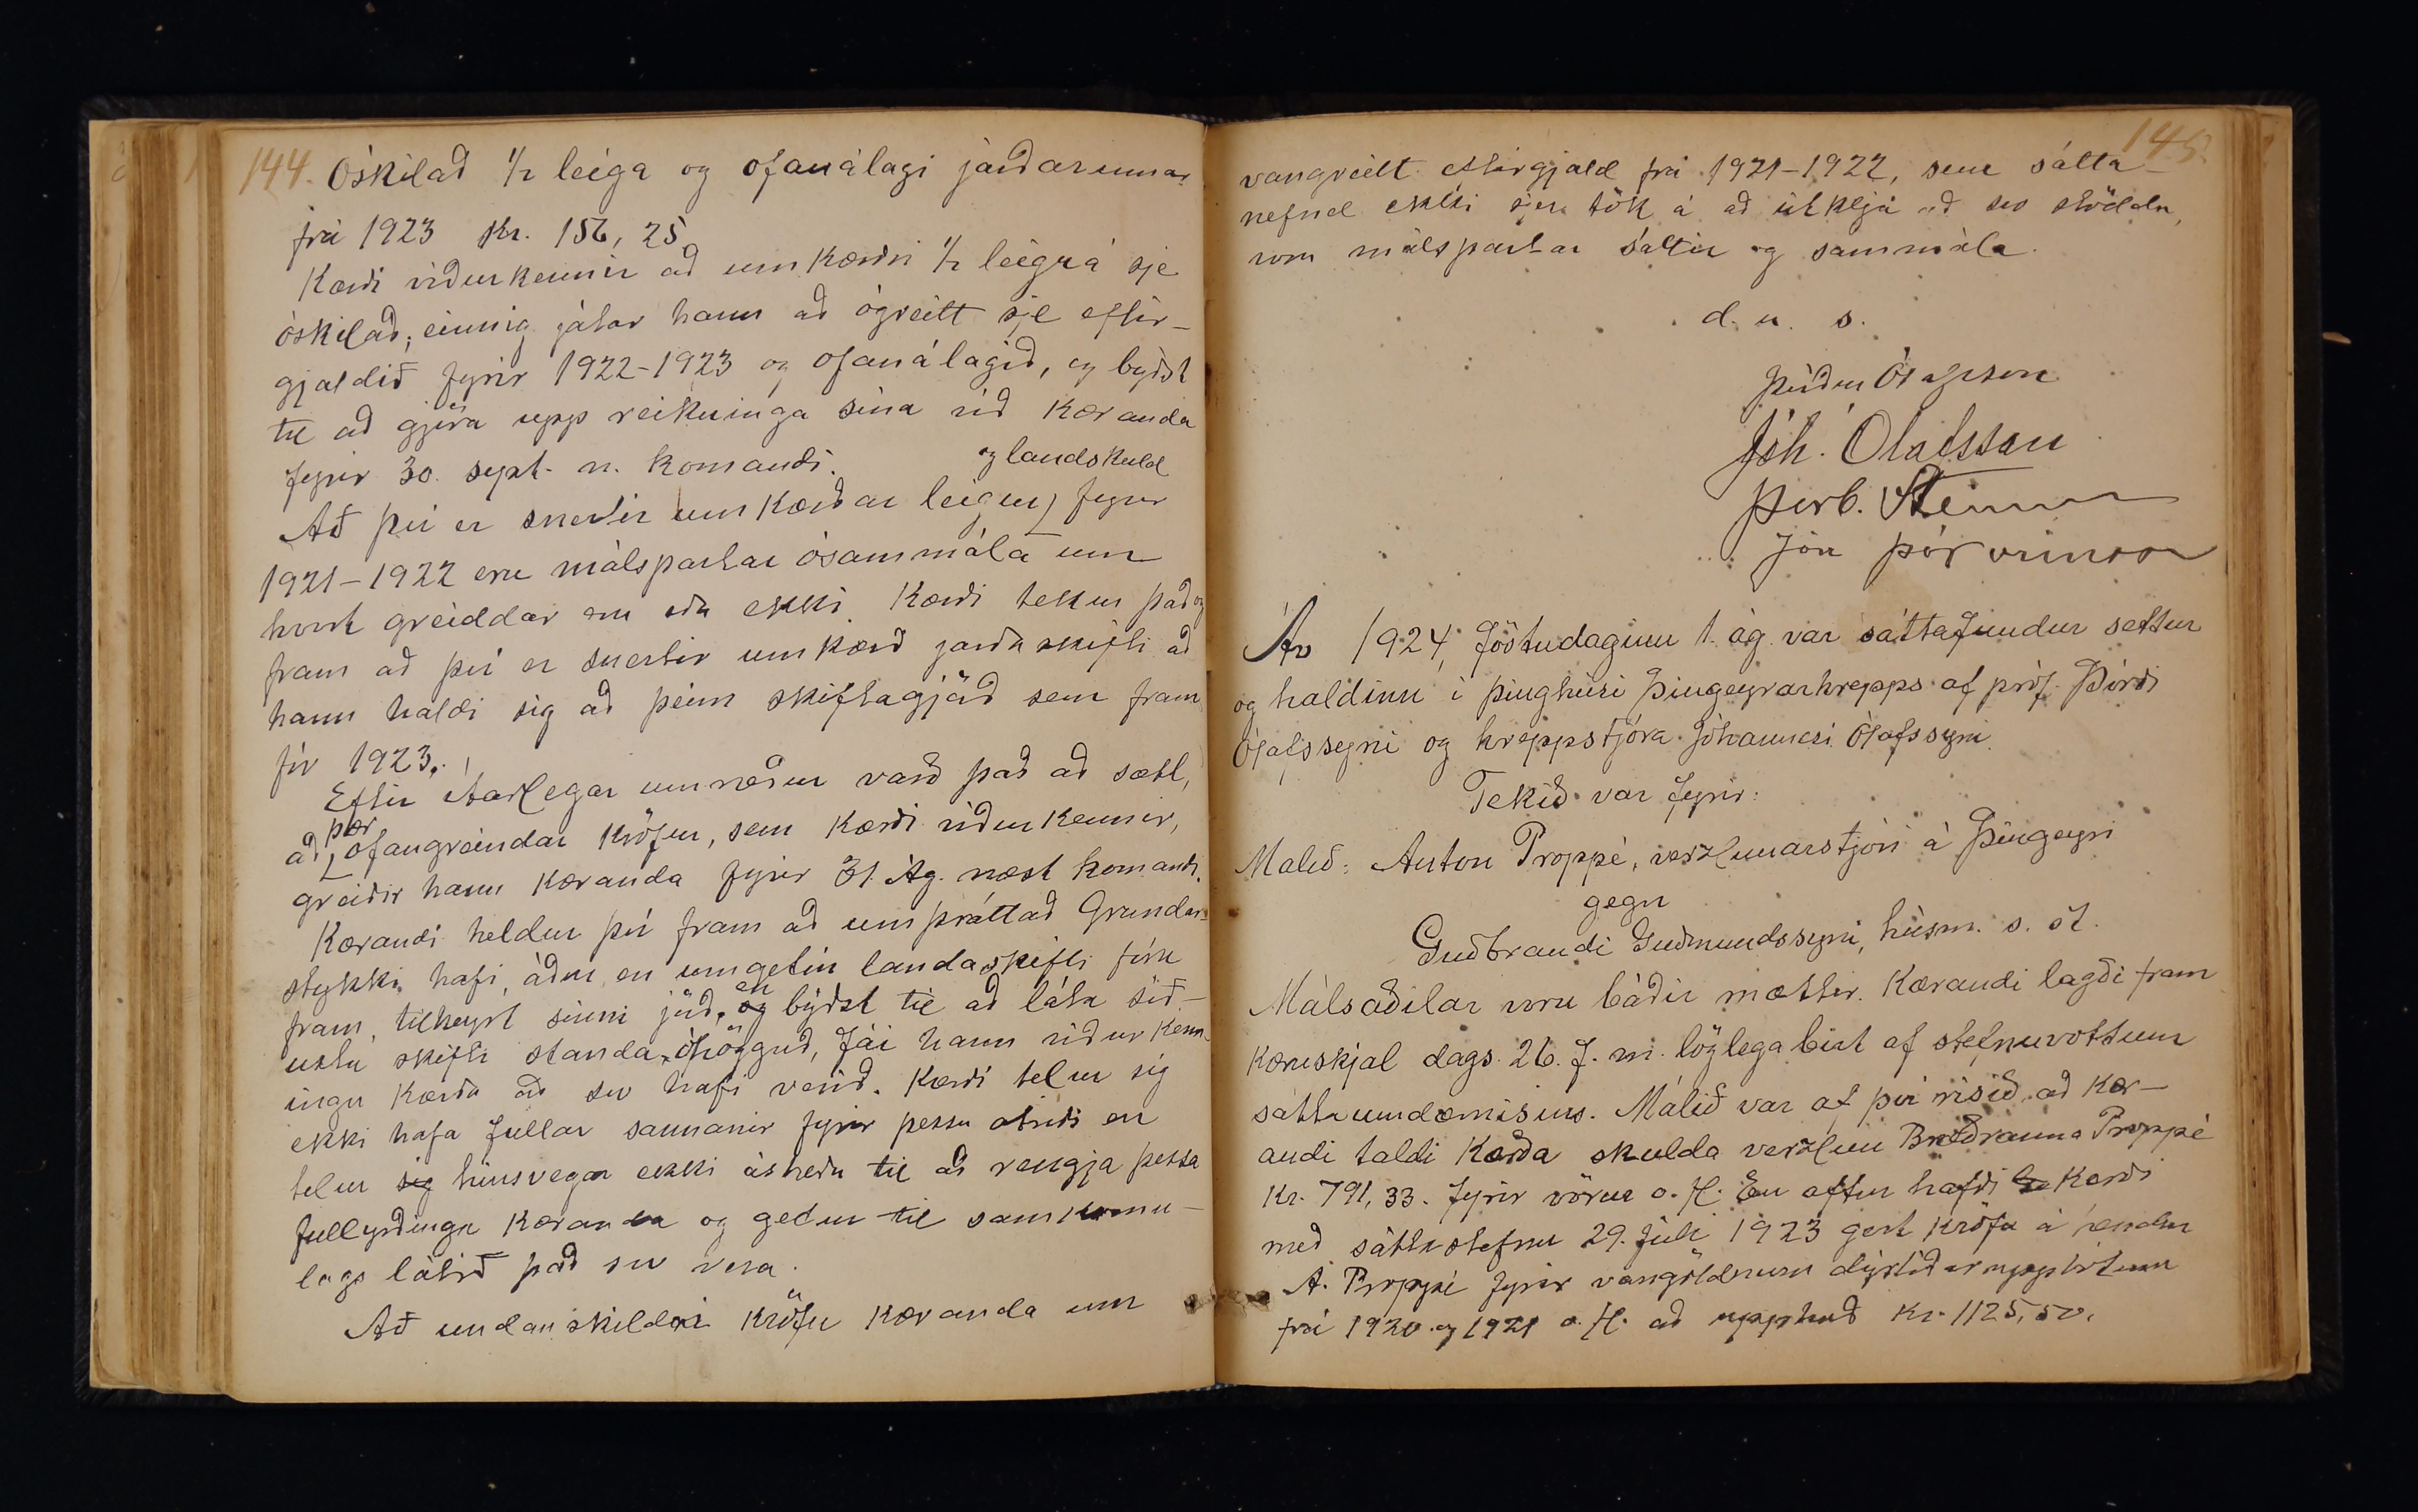 144. Óskilað 1/2 leiga og ofanálagi jarðarinnar
frá 1923 Kr. 156,25
Kærði viðurkennir að umkærðri 1/2 leigu á sje
óskilað; einnig játar hann að ógreitt sje eftir-
gjaldið fyrir 1922-1923 og ofanálagið, og býðst
til að gjöra upp reikninga sína við kæranda
fyrir 30. sept. n. komandi.
Að því er snertir umkærðar leigur og landskuld fyrir
1921-1922 eru málspartar ósammála um
hvort greiddar eru eða ekki. Kærði tekur það og
fram að því er snertir umkærð jarðaskifti að
hann haldi sig að þeim skiftagjörð sem fram
fór 1923.
Eftir ítarlegar umræður varð það að sætt,
að þær ofangreindar kröfur, sem kærði viðurkennir,
greiðir hann kæranda fyrir 31. Ág. næst komandi.
Kærandi heldur því fram að umþráttað Grundar-
stykki hafi, áður en umgetin landaskifti fóru
fram, tilheyrt sinni jörð, en býðst til að láta síð-
ustu skifti standa óhögguð, fái hann viðurkenn-
ingu kærða að svo hafi verið. Kærði telur sig
ekki hafa fullar sannanir fyrir þessu atriði en
telur sig hinsvegar ekki ástæðu til að rengja þessa
fullyrðingu kæranda og getur til samkomu-
lags látið það svo vera.
Að undanskildri kröfu kæranda um
145.
vangreitt eftirgjald frá 1921-1922, sem sátta-
nefnd ekki sjer tök á að útkljá að svo stöddu,
voru málspartar sáttir og sammála.
d. u. s.
Þórður Ólafsson
Jóh. Ólafsson
Þorb. Steinsson
Jón Þórarinsson
Ár 1924, föstudaginn 1. ág. var sáttafundur settur
og haldinn í þinghúsi Þingeyrarhrepps af próf. Þórði
Ólafssyni og hreppstjóra Jóhannesi Ólafssyni.
Tekið var fyrir:
Málið: Anton Proppé, verzlunarstjóri á Þingeyri
gegn
Guðbrandi Guðmundssyni, húsm. s. st.
Málsaðilar voru báðir mættir. Kærandi lagði fram
kæruskjal dags. 26. f. m. löglega birt af stefnuvottum
sáttaumdæmisins. Málið var af því risið, að kær-
andi taldi kærða skulda verzlun Bræðranna Proppé
Kr. 791,33. fyrir vörur o. fl. En aftur hafði kærði
með sáttastefnu 29. Júlí 1923 gert kröfu á hendur
A. Proppé fyrir vangoldnum dýrtíðaruppbótum
frá 1920 og 1921 o. fl. að upphæð Kr. 1125,50.